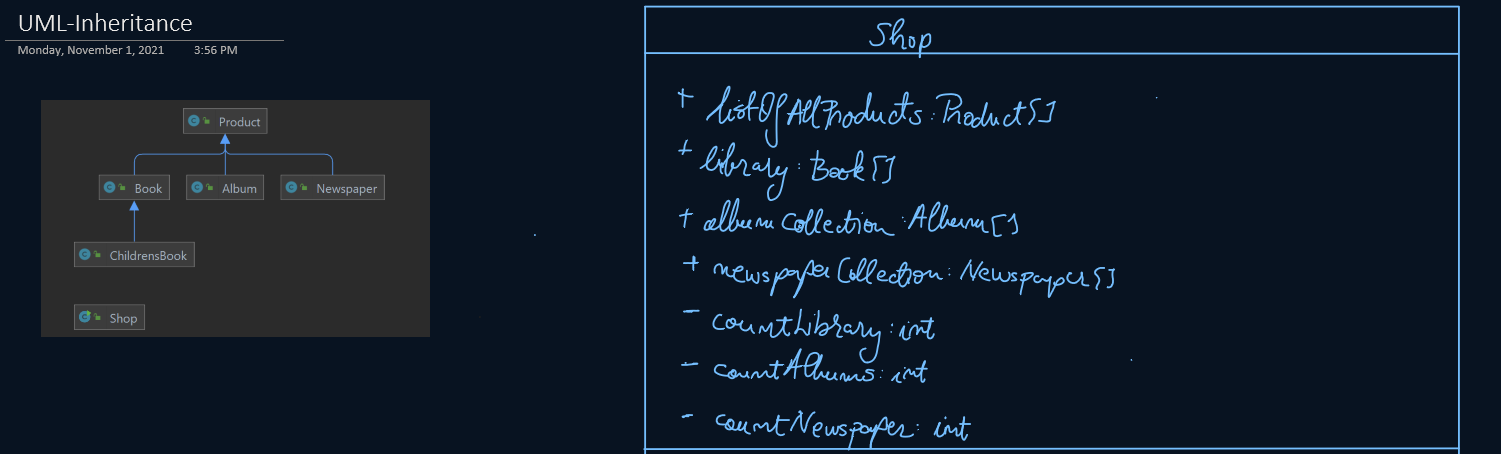 UML-Inheritance
Monday, November 1, 2021 3:56 PM
Product
Book Album Newspaper
ChildrensBook
Shop
Shop
+ listOfAllProducts : Product[]
+ library : Book[]
+ albumCollection : Album[]
+ newspaperCollection : Newspaper[]
- countLibrary : int
- countAlbums : int
- countNewspaper : int